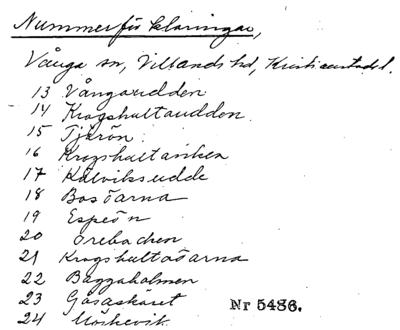 Nummerförklaringar,
Vånga sn, Villands hd, Kristianstads l.
13 Vångaudden
14 Krogshultaudden
15 Tjärön
16 Krogshultaviken
17 Kälviksudde
18 Bosöarna
19 Espeön
20 Örebacken
21 Krogshultaöarna
22 Baggaholmen
23 Gåsaskäret
Nr 5486.
24